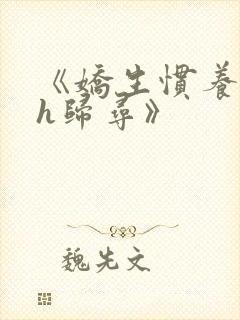 《嬌生慣養
h歸尋》
魏先文